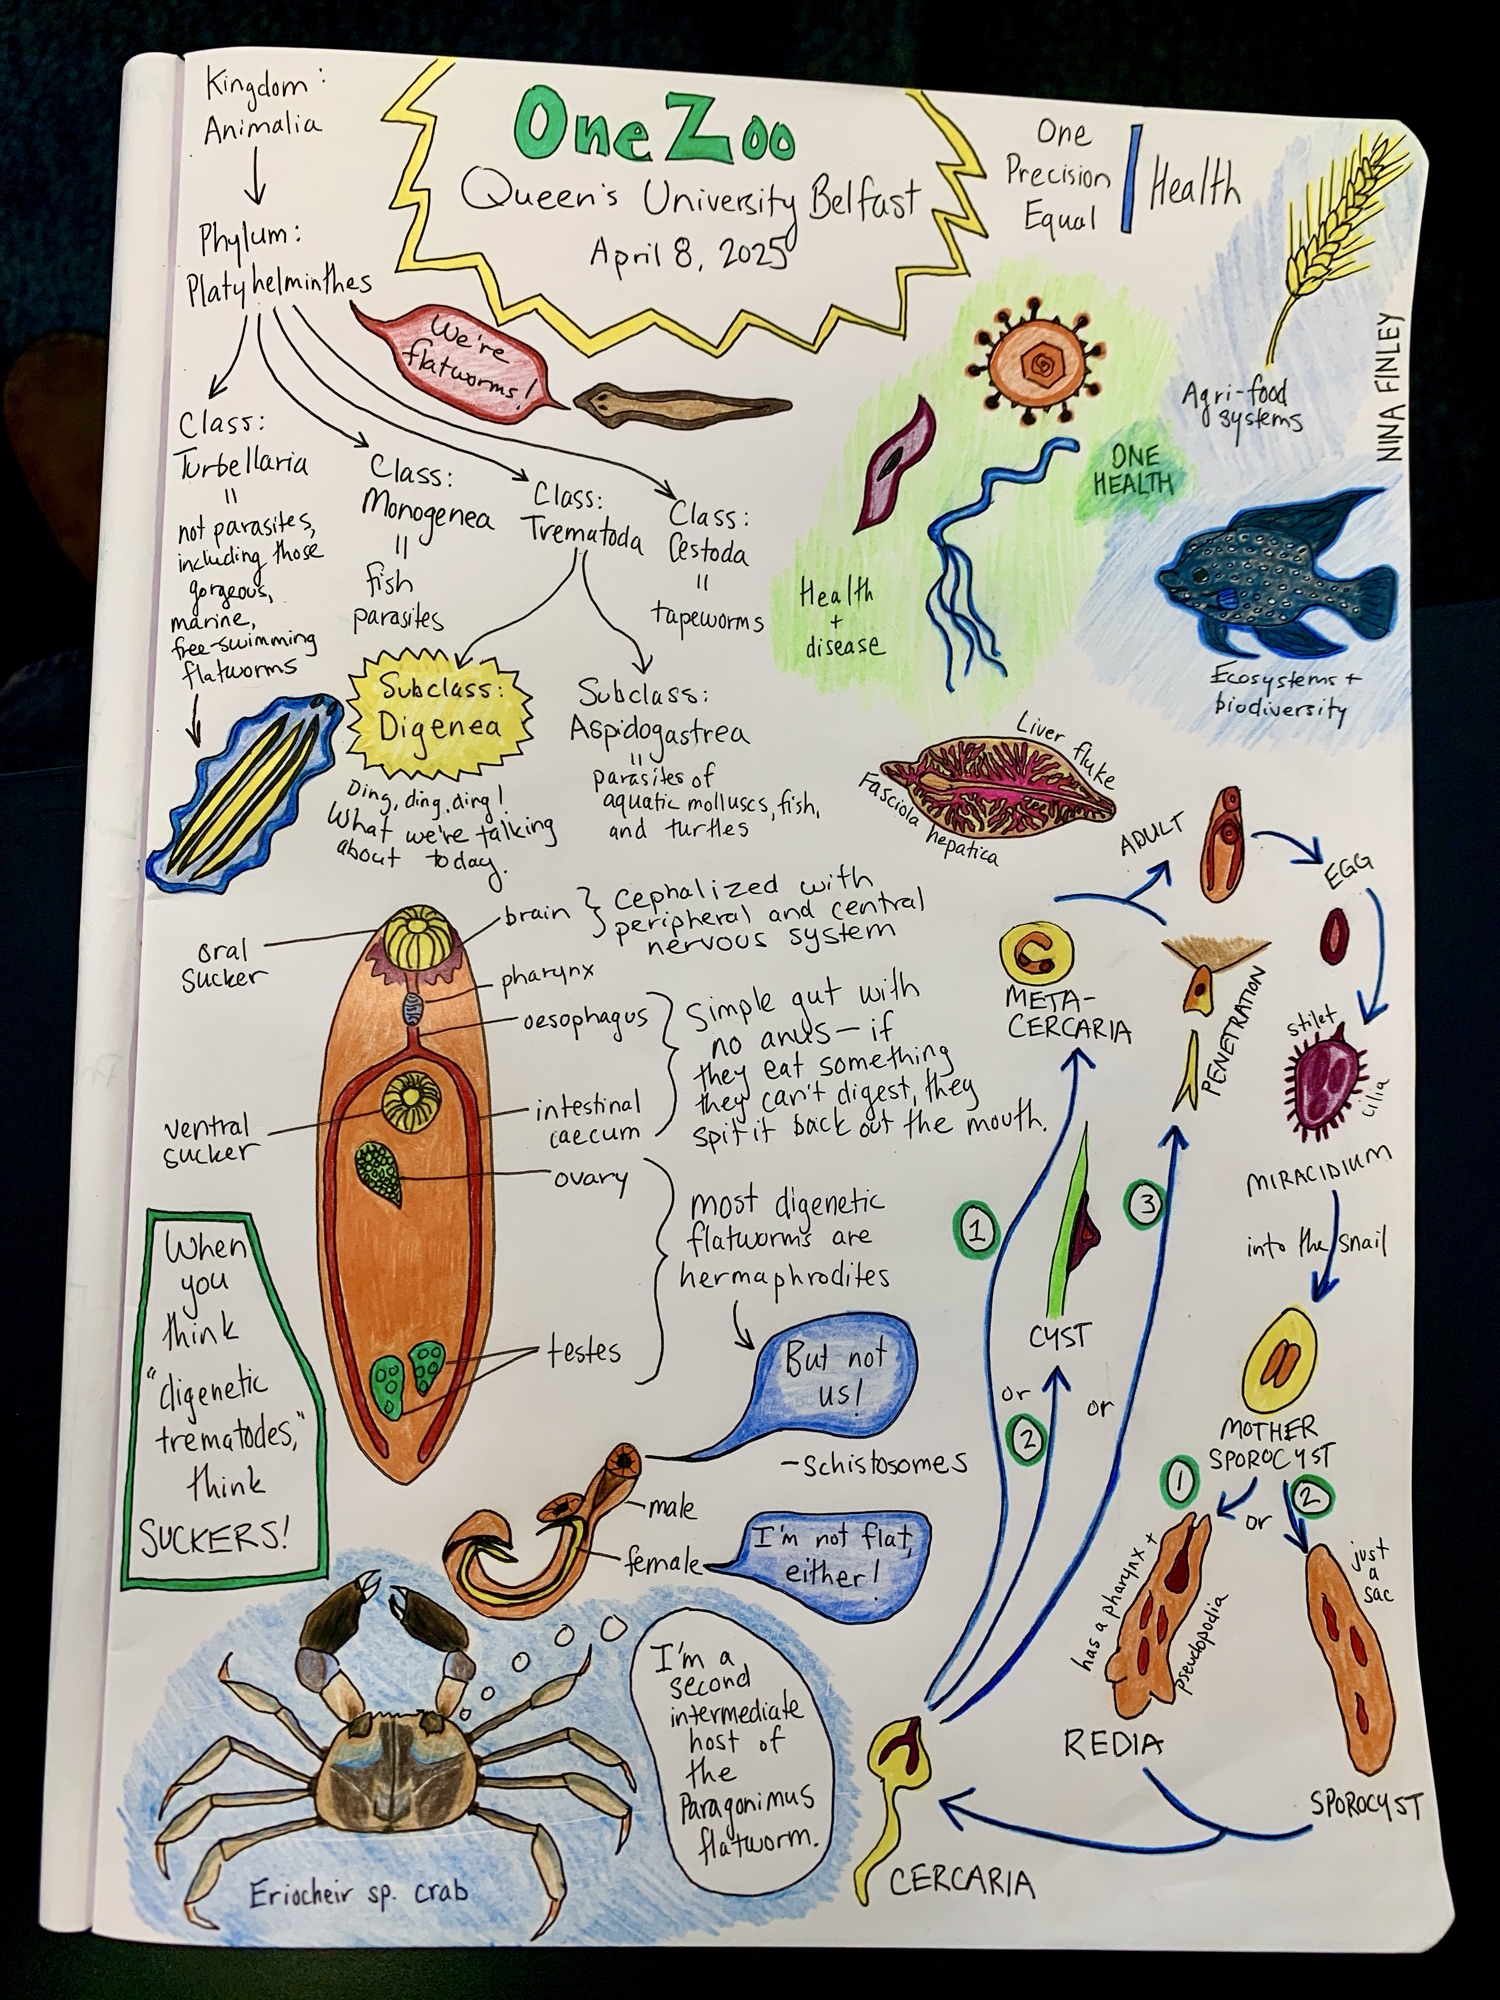 Kingdom:
Animalia
Phylum:
Platyhelminthes
One Zoo
Queen's University Belfast
April 8, 2025
One
Precision
Equal
Health
We're
flatworms!
Agri-food
systems
NINA FINLEY
ONE
HEALTH
Health
+
disease
Ecosystems +
biodiversity
Class:
Turbellaria
=
not parasites,
including those
gorgeous,
marine,
free-swimming
flatworms
Class:
Monogenea
=
fish
parasites
Class:
Trematoda
Class:
Cestoda
=
tapeworms
Subclass:
Digenea
Ding, ding, ding!
What we're talking
about today.
Subclass:
Aspidogastrea
=
parasites of
aquatic molluscs, fish,
and turtles
Liver fluke
Fasciola hepatica
oral
sucker
brain
Cephalized with
peripheral and central
nervous system
pharynx
oesophagus
Simple gut with
no anus— if
they eat something
they can't digest, they
spit it back out the mouth.
ventral
sucker
intestinal
caecum
ovary
most digenetic
flatworms are
hermaphrodites
testes
When
you
think
"digenetic
trematodes,"
think
SUCKERS!
But not
us!
-Schistosomes
male
female
I'm not flat,
either!
I'm a
second
intermediate
host of
the
Paragonimus
flatworm.
Eriocheir sp. crab
ADULT
EGG
stilet
cilia
MIRACIDIUM
into the snail
MOTHER
SPOROCYST
1
or
2
has a pharynx +
pseudopodia
REDIA
just
a
sac
SPOROCYST
CERCARIA
1
or
2
or
3
CYST
META-
CERCARIA
PENETRATION